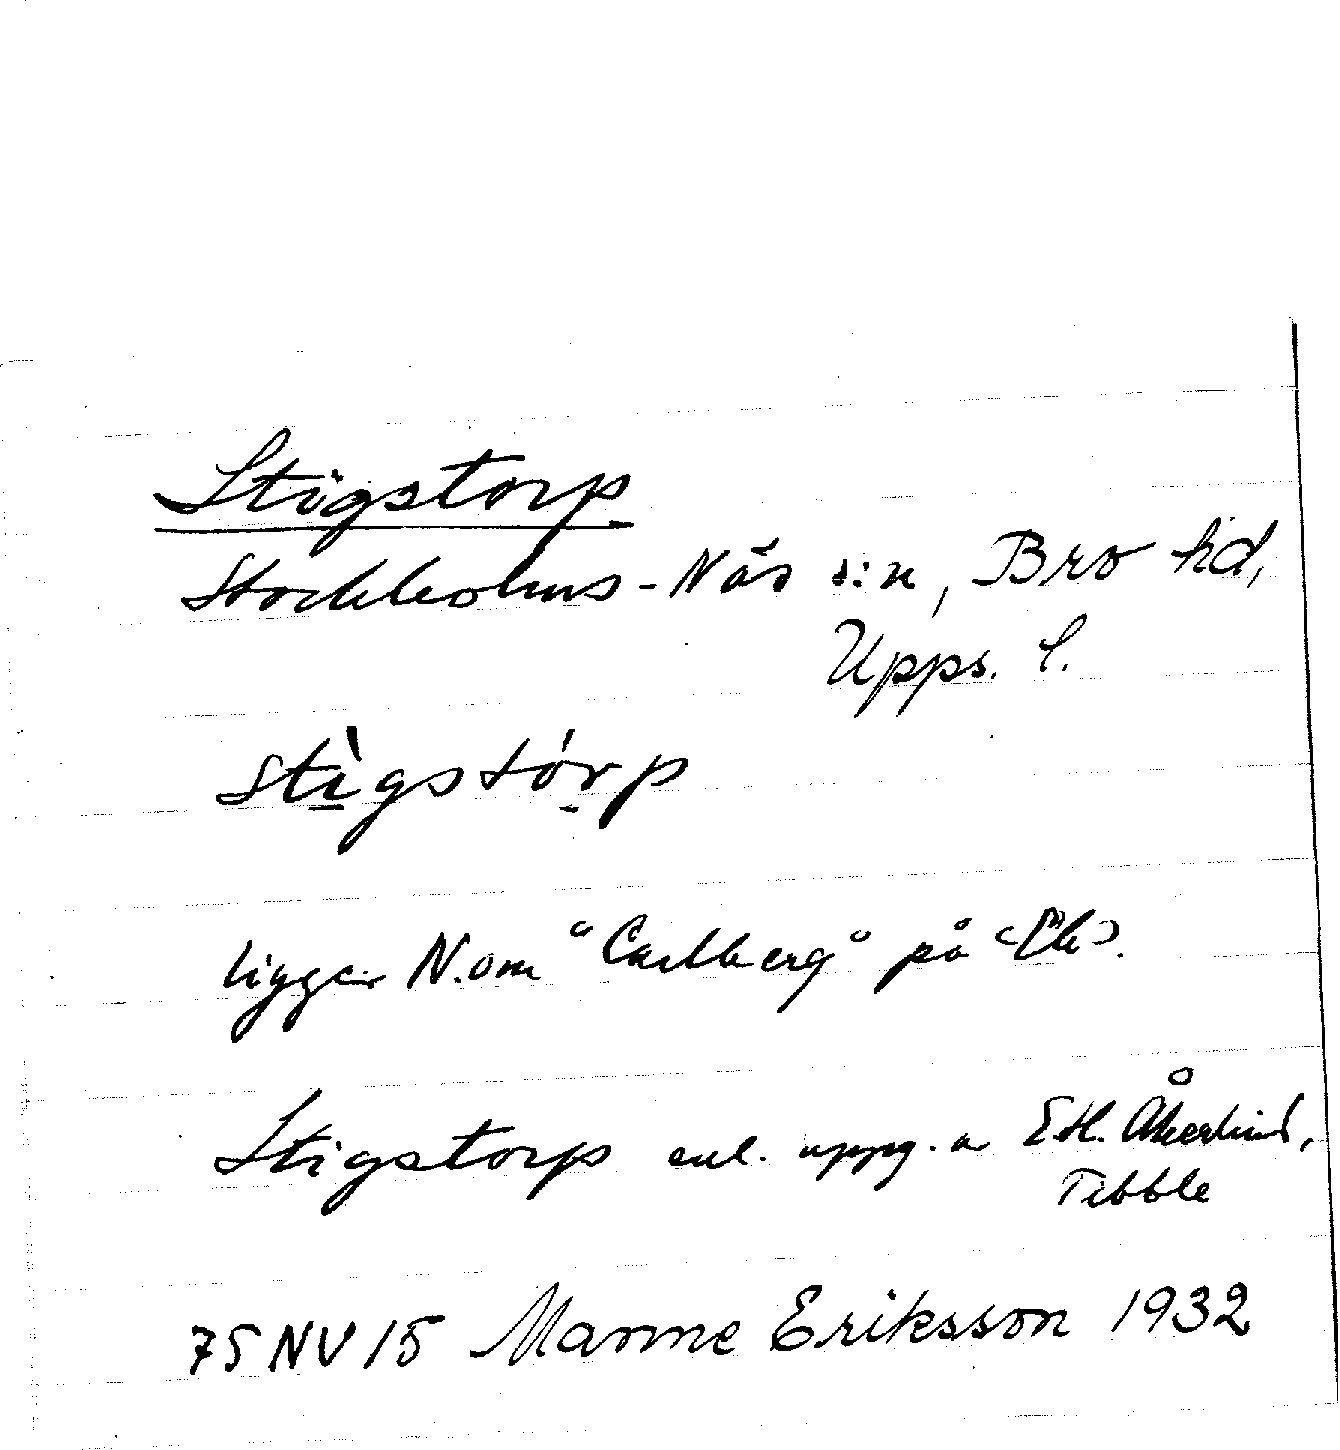 Stigstorp
Stockholms-Näs s:n, Bro hd,
Upps. l.
stìgstórp
ligger N.om "Carlberg" på
Stigstorp enl. uppg. a Åkerlund,
Tibble
75 NV 15 Manne Eriksson 1932